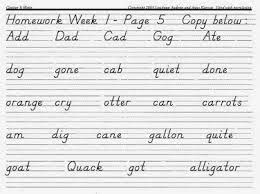 Homework Week 1 - Page 5 Copy below:
Add Dad Cad Gog Ate
dog gone cab quiet done
orange cry otter can carrots
am dig cane gallon quite
goat Quack got alligator